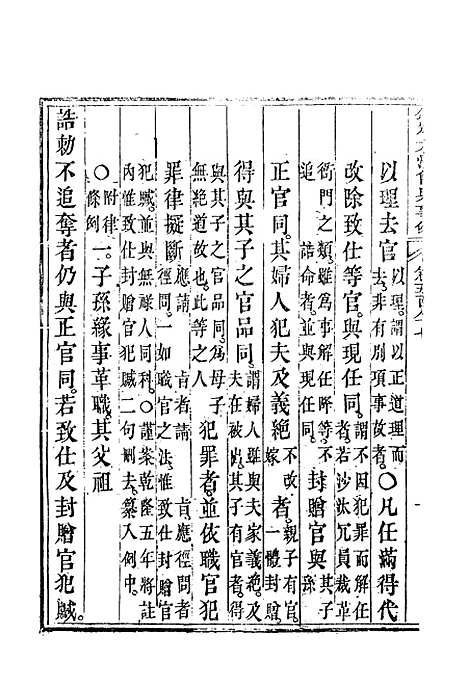 以理去官以理謂以正道理而去非有別項事故者○凡任滿得代
改除致仕等官與現任同謂不因犯罪而解任者若沙汰冗員裁革
衙門之類雖為事解任降等不追誥命者並與現任同封贈官與其子孫
正官同其婦人犯夫及義絕不改嫁者親子有官一體封贈
得與其子之官品同謂婦人雖與夫家義絕及夫在被出其子有官者得
與其子之官品同為母子無絕道故也此等之人犯罪者並依職官犯
罪律擬斷應請旨者請旨應徑問者徑問一如職官之法惟致仕封贈官
犯贓並與無祿人同科○謹案乾隆五年將註內惟致仕封贈官犯贓二句刪去纂入例中
○附律條例一子孫緣事革職其父祖
誥勅不追奪者仍與正官同若致仕及封贈官犯贓